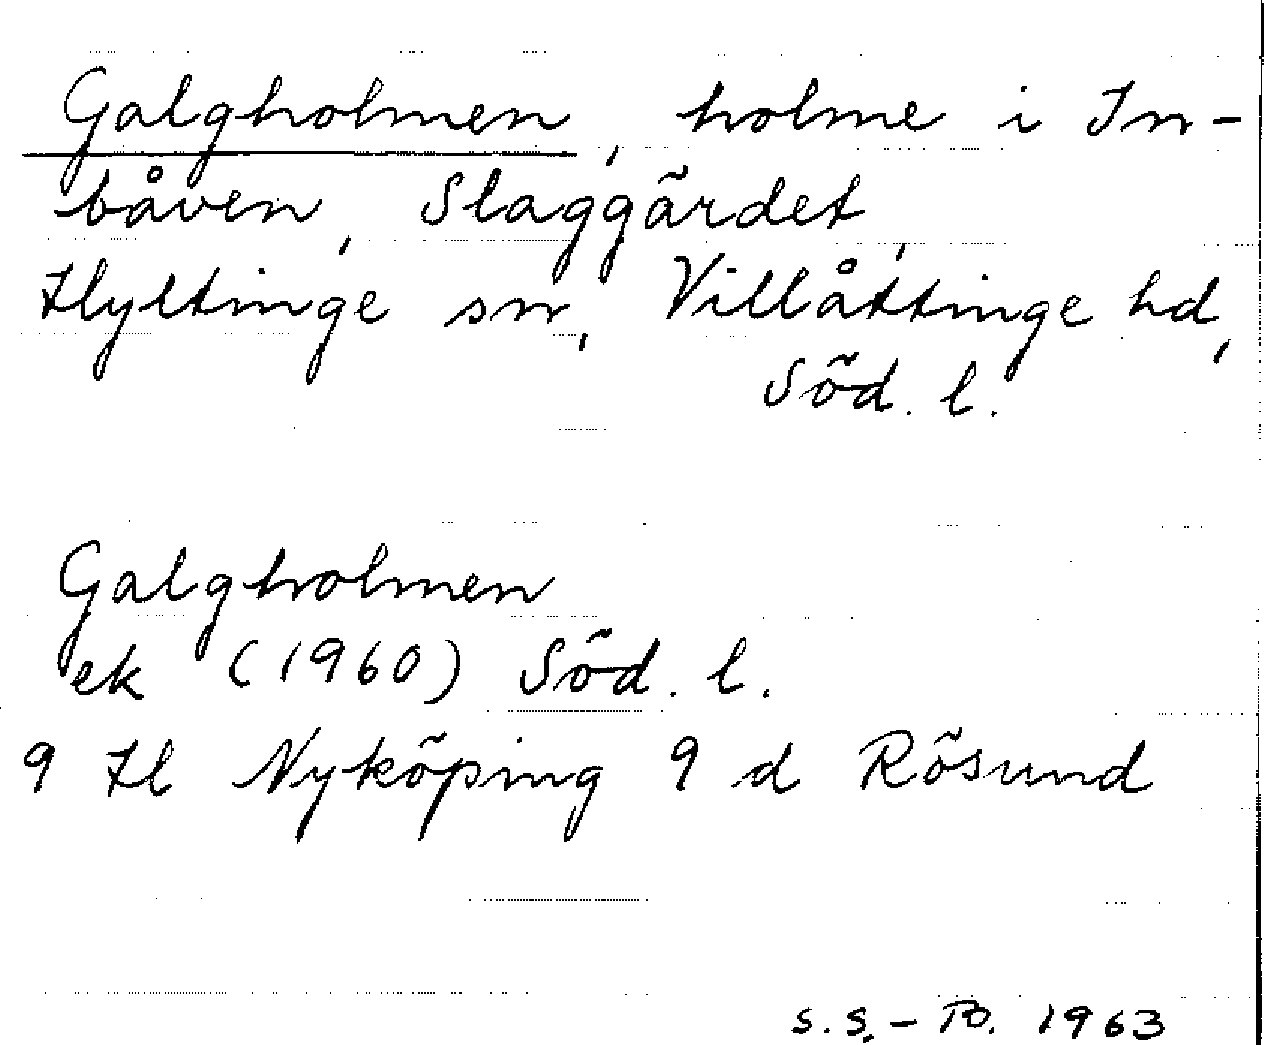 Galgholmen, holme i In-
båven, Slaggärdet,
Hyltinge sn, Villåttinge hd,
Söd. l.
Galgholmen
ek (1960) Söd. l.
9 H Nyköping 9 d Rösund
S.S. - Bo. 1963